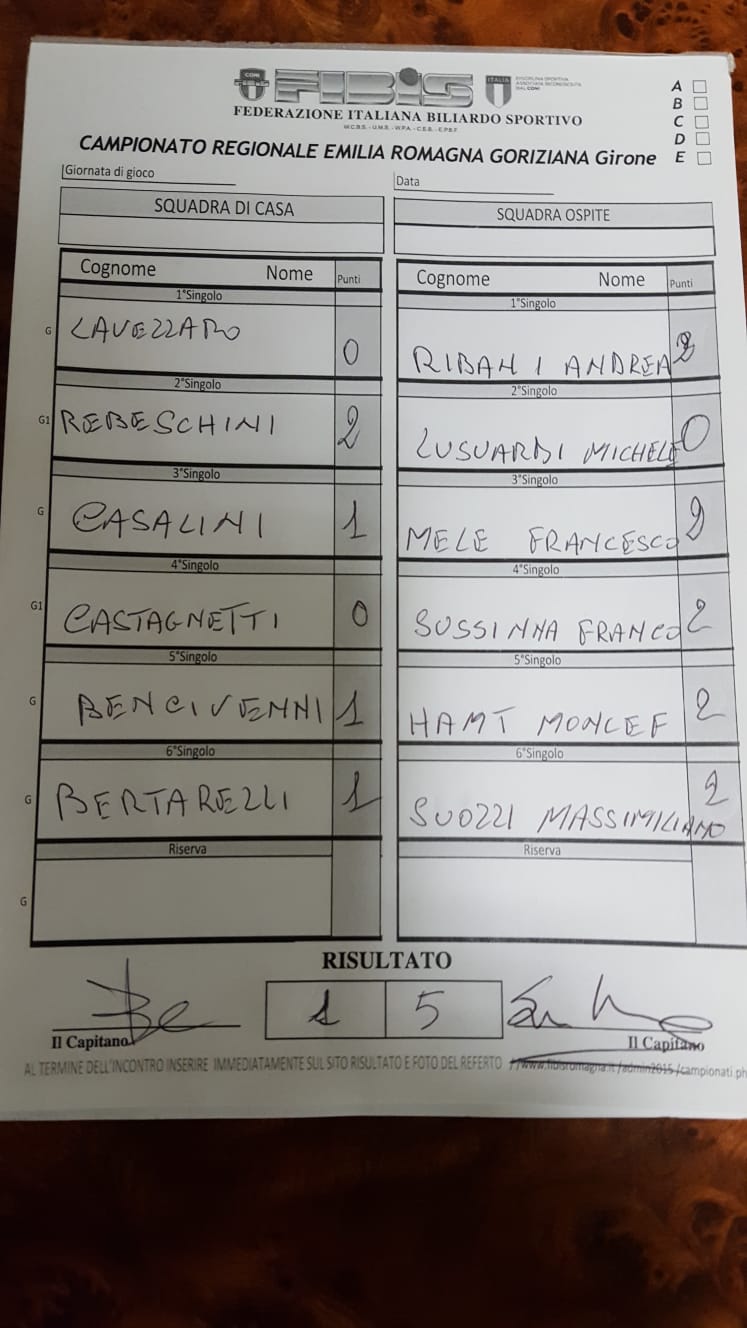 CONI FIBIS ITALIA DISCIPLINA SPORTIVA ASSOCIATA RICONOSCIUTA DAL CONI
FEDERAZIONE ITALIANA BILIARDO SPORTIVO
W.C.B.S. - U.M.B. - W.P.A. - C.E.B. - E.P.B.F.
A
B
C
D
E
CAMPIONATO REGIONALE EMILIA ROMAGNA GORIZIANA Girone
Giornata di gioco Data
SQUADRA DI CASA SQUADRA OSPITE
Cognome Nome Punti Cognome Nome Punti
1°Singolo 1°Singolo
G LAVEZZARO 0 RIBANI ANDREA 2
2°Singolo 2°Singolo
G1 REBESCHINI 2 LUSUARDI MICHELE 0
3°Singolo 3°Singolo
G CASALINI 1 MELE FRANCESCO 2
4°Singolo 4°Singolo
G1 CASTAGNETTI 0 SUSSINNA FRANCO 2
5°Singolo 5°Singolo
G BENCIVENNI 1 HAMT MONCEF 2
6°Singolo 6°Singolo
G BERTARELLI 1 SUOZZI MASSIMILIANO 2
Riserva Riserva
G
RISULTATO
1 5
Il Capitano Il Capitano
AL TERMINE DELL'INCONTRO INSERIRE IMMEDIATAMENTE SUL SITO RISULTATO E FOTO DEL REFERTO //www.fibisromagna.it/admin2015/campionati.ph